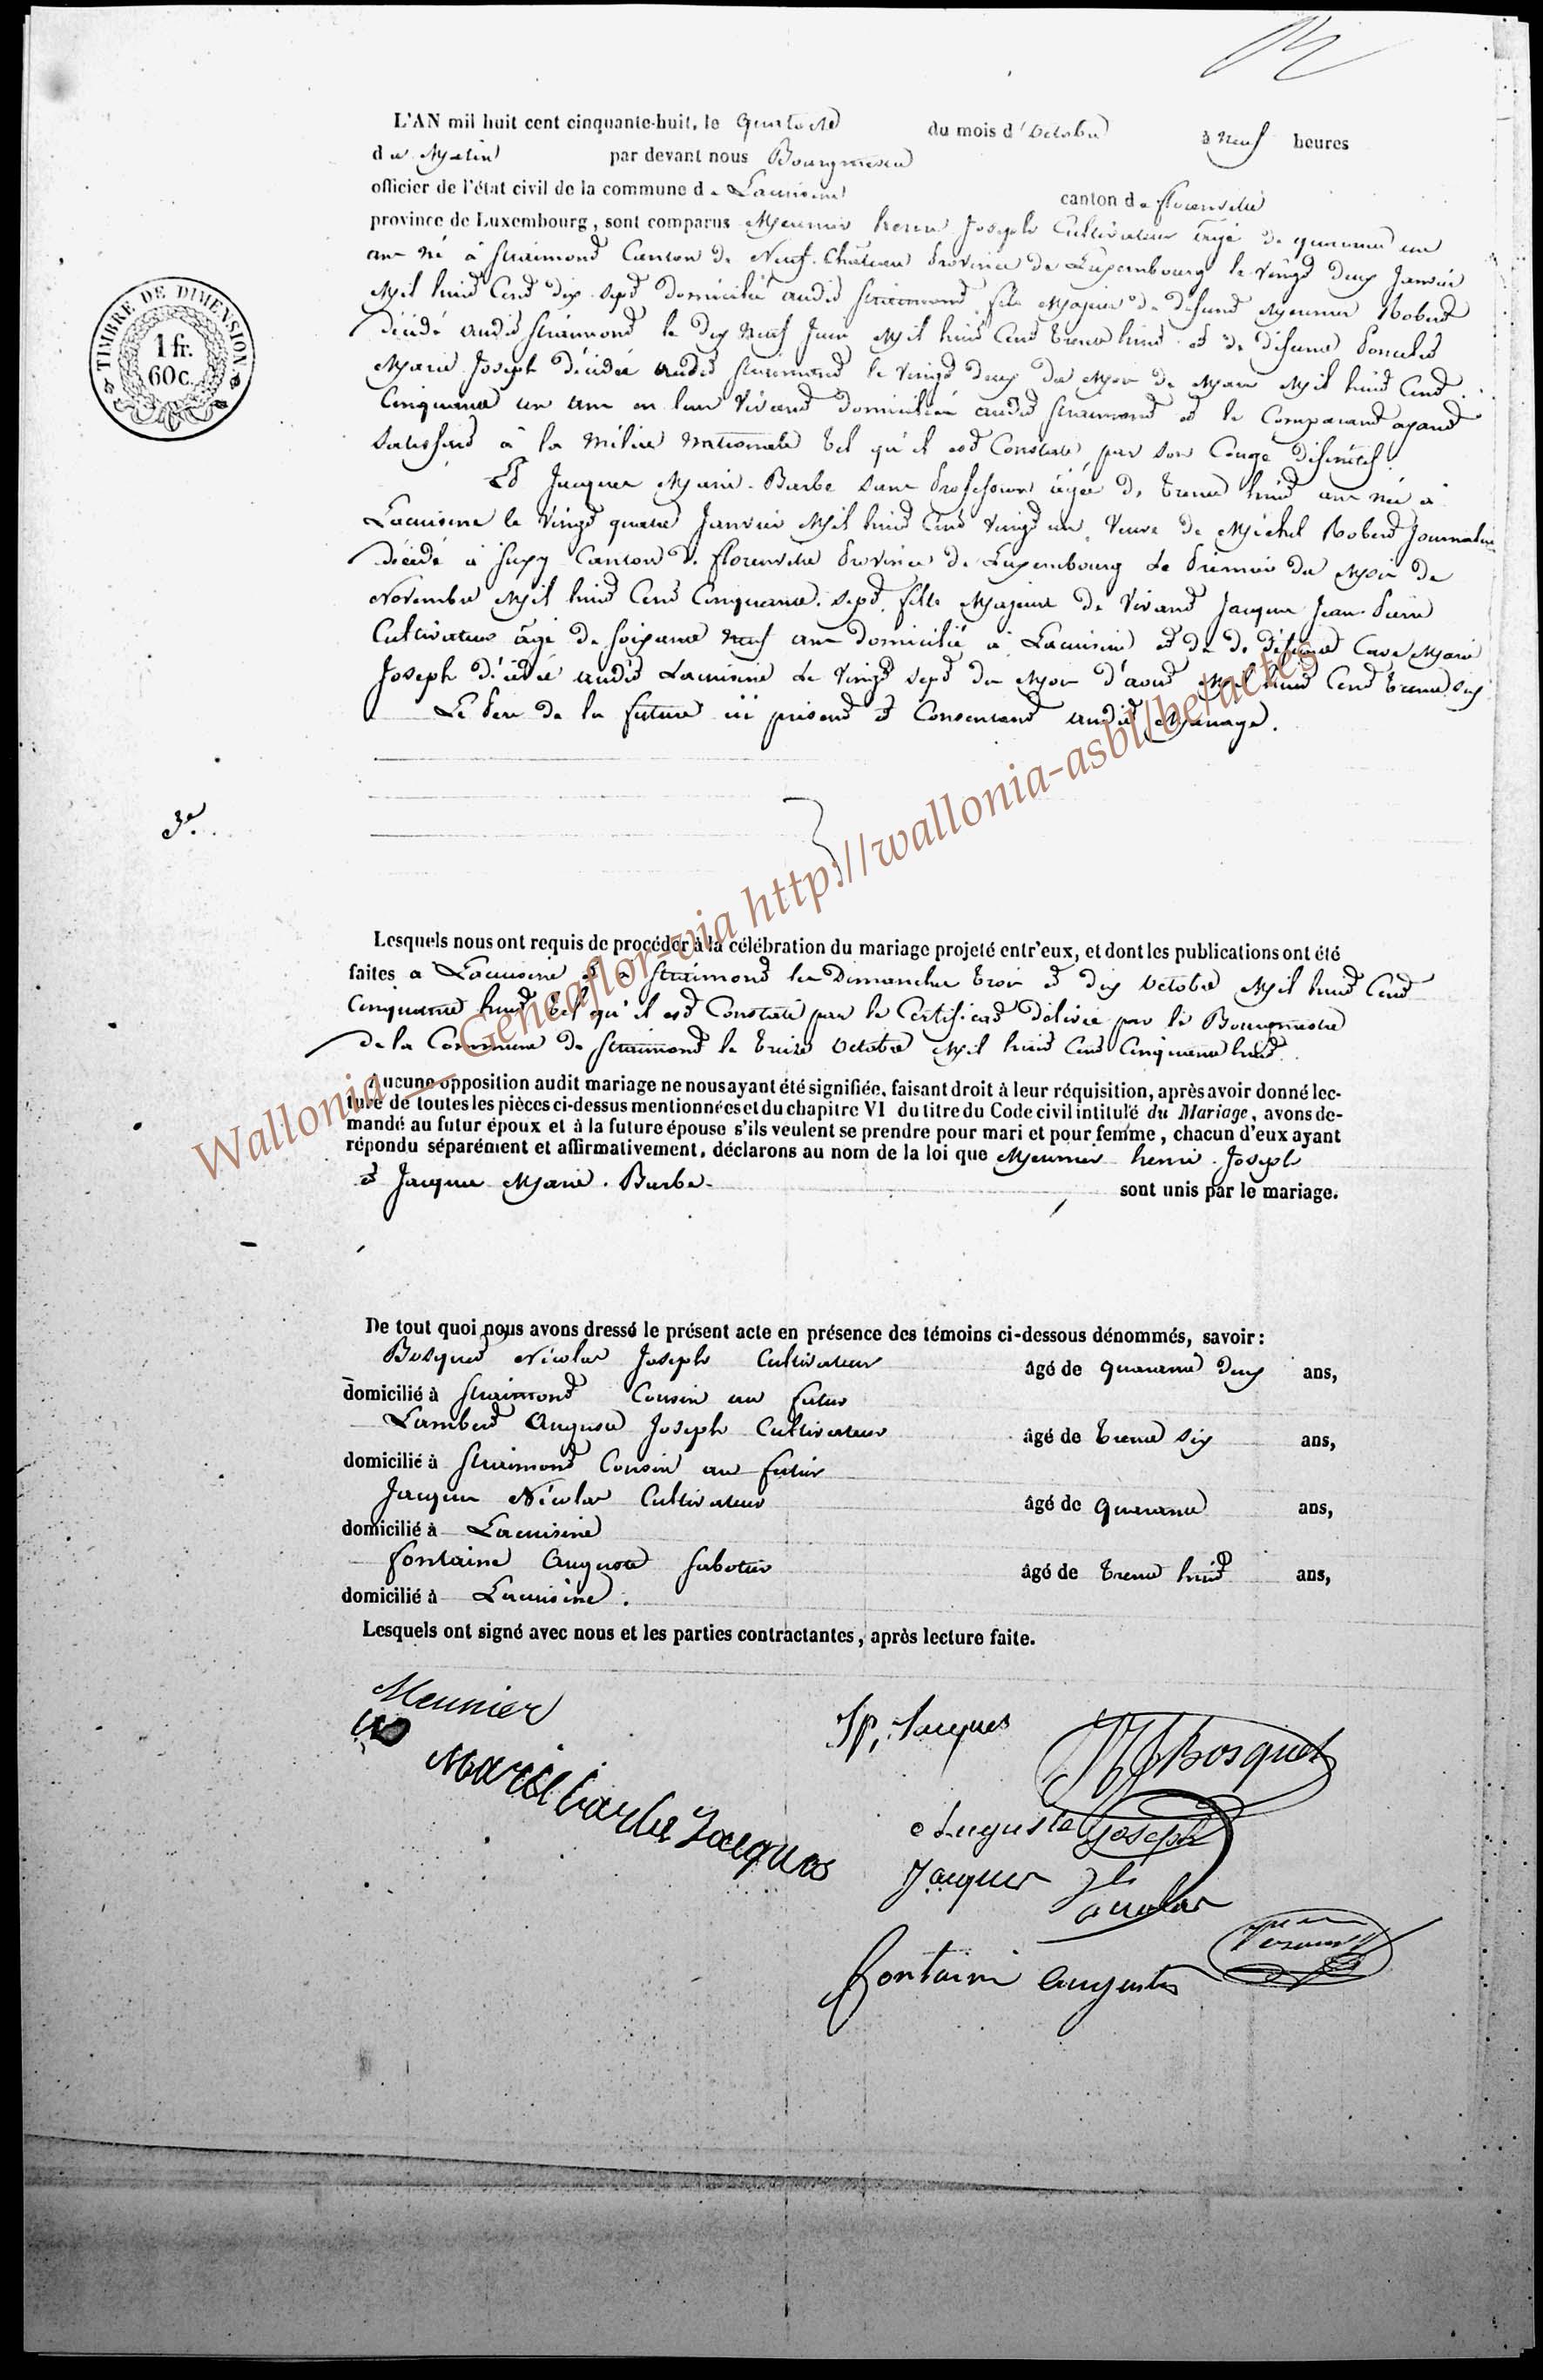 L'AN mil huit cent cinquante-huit, le quatorze du mois d'octobre à neuf heures
du Matin par devant nous Bourgmestre
officier de l'état civil de la commune de Lacuisine canton de florenville
province de Luxembourg, sont comparus Meunier henri Joseph Cultivateur âgé de quarante un
ans né à Straimont Canton de Neuf-Château Province de Luxembourg le vingt deux Janvier
Mil huit Cent dix-sept domicilié audit Straimont fils Majeur de défunt Meunier Robert
décédé audit Straimont le dix neuf Juin Mil huit Cent trente huit et de défunte
Marie Joseph décédée audit Straimont le vingt deux du Mois de Mars Mil huit Cent
Cinquante un ans en leur vivant domiciliés audit Straimont et le Comparant ayant
satisfait à la Milice Nationale tel qu'il est Constaté par son Congé définitif.
Et Jacques Marie-Barbe sans Profession âgée de trente huit ans née à
Lacuisine le vingt quatre Janvier Mil huit Cent vingt un, veuve de Michel Robert Journalier
décédé à Suxy Canton de florenville Province de Luxembourg le Premier du Mois de
Novembre Mil huit Cent Cinquante-sept, fille Majeure de vivant Jacques Jean-Pierre
Cultivateur âgé de soixante neuf ans domicilié à Lacuisine et de de défunte Marie
Joseph décédée audit Lacuisine le vingt sept du Mois d'août Mil huit Cent trente six
Le Père de la future ici présent et Consentant audit Mariage.
3e
Lesquels nous ont requis de procéder à la célébration du mariage projeté entr'eux, et dont les publications ont été
faites à Lacuisine et à Straimont les Dimanches trois et dix octobre Mil huit Cent
Cinquante huit tel qu'il est Constaté par le Certificat délivré par le Bourgmestre
de la Commune de Straimont le treize octobre Mil huit Cent Cinquante huit.
Aucune opposition audit mariage ne nous ayant été signifiée, faisant droit à leur réquisition, après avoir donné lec-
ture de toutes les pièces ci-dessus mentionnées et du chapitre VI du titre du Code civil intitulé du Mariage, avons de-
mandé au futur époux et à la future épouse s'ils veulent se prendre pour mari et pour femme, chacun d'eux ayant
répondu séparément et affirmativement, déclarons au nom de la loi que Meunier henri-Joseph
et Jacques Marie-Barbe sont unis par le mariage.
De tout quoi nous avons dressé le présent acte en présence des témoins ci-dessous dénommés, savoir:
Bosquet Nicolas Joseph Cultivateur âgé de quarante deux ans,
domicilié à Straimont Cousin au futur
Lambert Auguste Joseph Cultivateur âgé de trente six ans,
domicilié à Straimont Cousin au futur
Jacques Nicolas Cultivateur âgé de quarante ans,
domicilié à Lacuisine
fontaine Auguste Sabotier âgé de trente huit ans,
domicilié à Lacuisine.
Lesquels ont signé avec nous et les parties contractantes, après lecture faite.
Meunier
Jp. Jacques
Bosquet
Marie barbe Jacques
Auguste Joseph
Jacques
fontaine
TIMBRE DE DIMENSION
1 fr.
60 c.
Wallonia – Geneaflor-via http://wallonia-asbl/be/actes